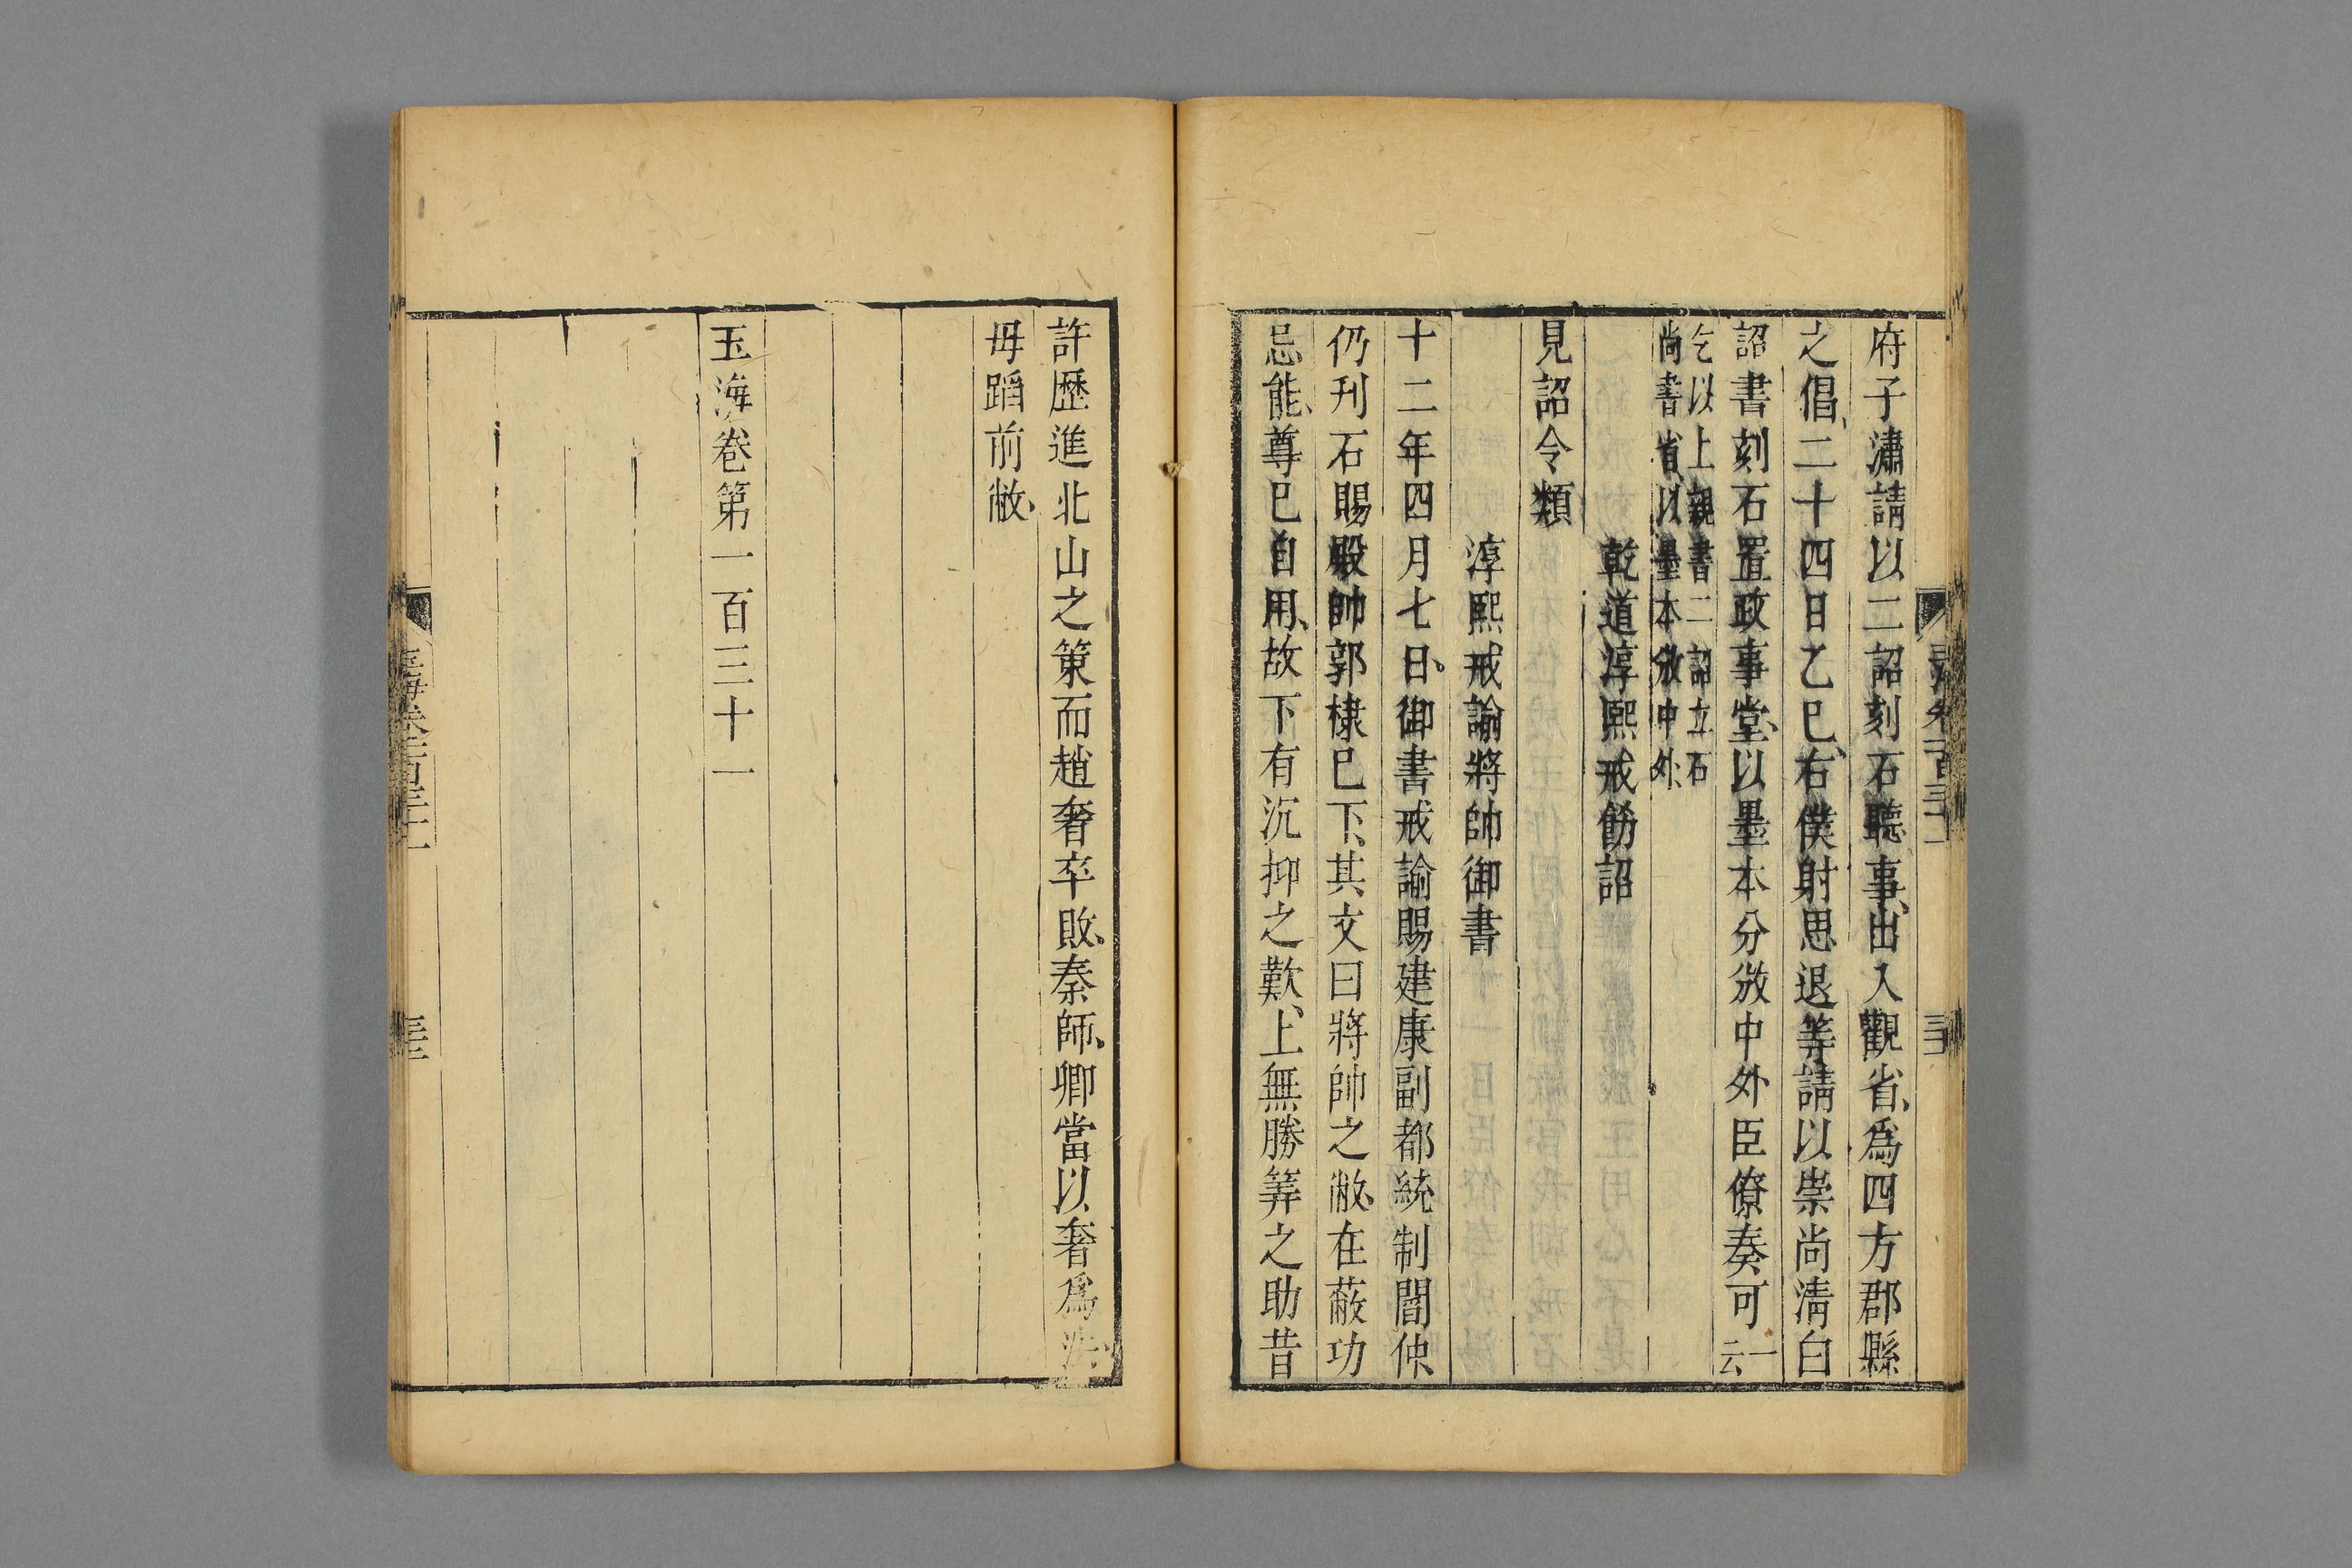 府子潚請以二詔刻石聽事出入觀省爲四方郡縣
之倡二十四日乙巳右僕射思退等請以崇尚淸白
詔書刻石置政事堂以墨本分攽中外臣僚奏可一云
乞以上親書二詔立石
尚書省以墨本攽中外
乾道淳熙戒飭詔
見詔令類
淳熙戒諭將帥御書
十二年四月七日御書戒諭賜建康副都統制閻仲
仍刊石賜殿帥郭棣已下其文曰將帥之敝在蔽功
忌能尊已自用故下有沉抑之歎上無勝筭之助昔
許歷進北山之策而趙奢卒敗秦師卿當以奢爲法
毋蹈前敝
玉海卷第一百三十一